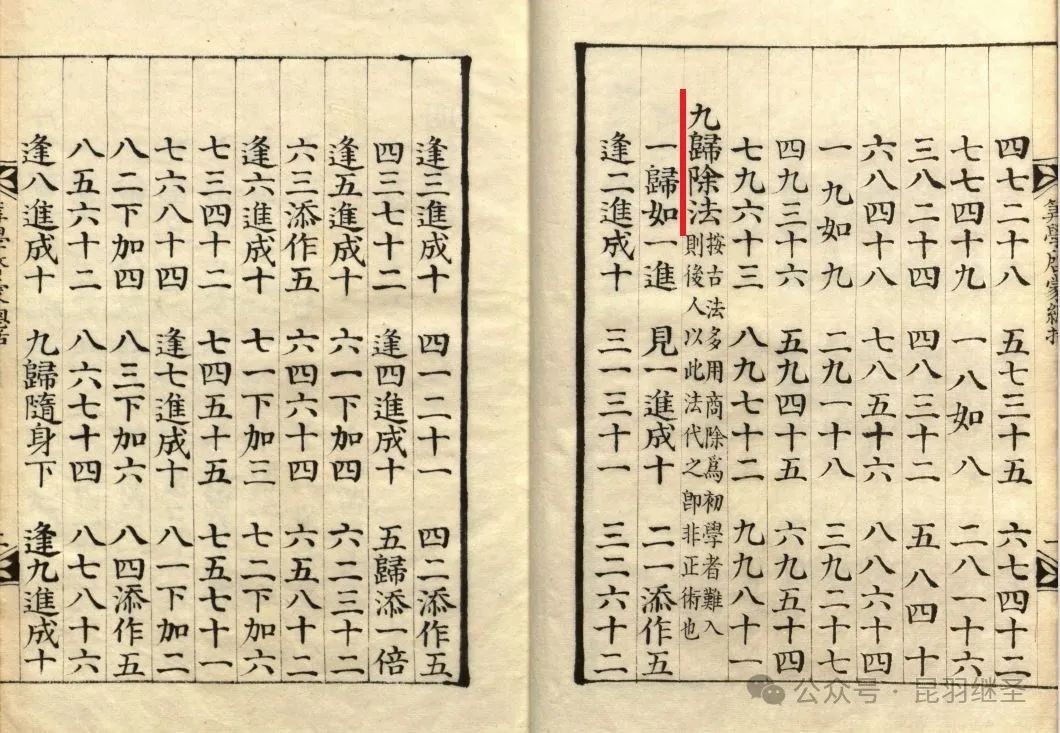 四七二十八 五七三十五 六七四十二
七七四十九 一八如八 二八一十六
三八二十四 四八三十二 五八四十
六八四十八 七八五十六 八八六十四
一九如九 二九一十八 三九二十七
四九三十六 五九四十五 六九五十四
七九六十三 八九七十二 九九八十一
九歸除法 按古法多用商除爲初學者難入
則後人以此法代之卽非正術也
一歸如一進 見一進成十 二一添作五
逢二進成十 三一三十一 三二六十二
逢三進成十 四一二十二 四二添作五
四三七十二 逢四進成十 五歸添一倍
逢五進成十 六一下加四 六二三十二
六三添作五 六四六十四 六五八十二
逢六進成十 七一下加三 七二下加六
七三四十二 七四五十五 七五七十一
七六八十四 逢七進成十 八一下加二
八二下加四 八三下加六 八四添作五
八五六十二 八六七十四 八七八十六
逢八進成十 九歸隨身下 逢九進成十
公众号 · 昆羽继圣